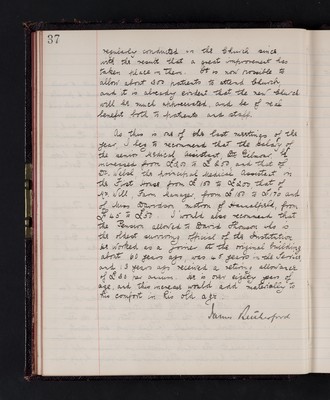 37
regularly conducted in the Church since
with the result that a great improvement has
taken place in them. It is now possible to
allow about 300 patients to attend Church
and it is already evident that the new Church
will be much appreciated, and be of real
benefit both to patients and staff.
As this is one of the last meetings of the
year I beg to recommend that the Salary of
the senior Medical Assistant Dr. Gilmour, be
increased from to and that of
Dr. the principal Medical Assistant in
the First House from to £200 that of
Mr. Farm Manager from £150 to £170 and
of Miss Davidson matron of from
£45 to £50. I would also recommend that
the Pension allowed to David who is
the oldest surviving official of the Institution
he worked as a Joiner at the original building
about years ago, was years in the Service
and 13 years ago received a retiring allowance
of per annum. He is over eighty years of
age, and this increase would add materially to
his comfort in his old age.
James Rutherford